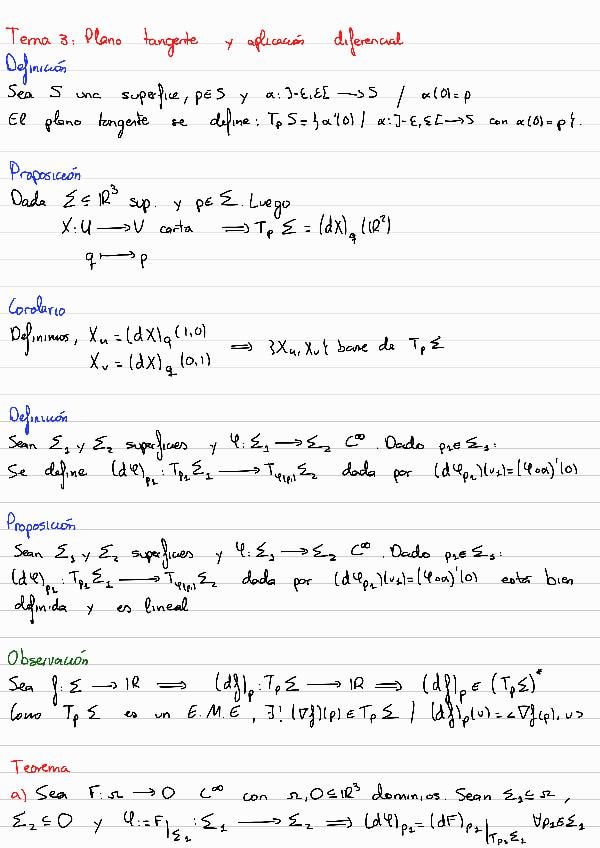 Tema 3: Plano tangente y aplicación diferencial
Definición
Sea S una superficie, p∈S y α:]-ε,ε[ ⟶ S / α(0)=p
El plano tangente se define: T_p S = {α'(0) / α:]-ε,ε[ ⟶ S con α(0)=p}.
Proposición
Dada Σ⊆ℝ³ sup. y p∈Σ. Luego
X: U ⟶ V carta ⟹ T_p Σ = (dX)_q (ℝ²)
q ⟼ p
Corolario
Definimos, X_u = (dX)_q (1,0)
X_v = (dX)_q (0,1) ⟹ {X_u, X_v} base de T_p Σ
Definición
Sean Σ₁ y Σ₂ superficies y φ: Σ₁ ⟶ Σ₂ C^∞. Dado p₁∈Σ₁:
Se define (dφ)_{p₁}: T_{p₁}Σ₁ ⟶ T_{φ(p₁)}Σ₂ dada por (dφ_{p₁})(v₁)=(φ∘α)'(0)
Proposición
Sean Σ₁ y Σ₂ superficies y φ: Σ₁ ⟶ Σ₂ C^∞. Dado p₁∈Σ₁:
(dφ)_{p₁}: T_{p₁}Σ₁ ⟶ T_{φ(p₁)}Σ₂ dada por (dφ_{p₁})(v₁)=(φ∘α)'(0) está bien
definida y es lineal
Observación
Sea f: Σ ⟶ ℝ ⟹ (df)_p: T_p Σ ⟶ ℝ ⟹ (df)_p ∈ (T_p Σ)^*
Como T_p Σ es un E.M.E, ∃! (∇f)(p) ∈ T_p Σ / (df)_p(v) = <∇f(p), v>
Teorema
a) Sea F: Ω ⟶ O C^∞ con Ω, O⊆ℝ³ dominios. Sean Σ₁⊆Ω,
Σ₂⊆O y φ:=F|_{Σ₁}: Σ₁ ⟶ Σ₂ ⟹ (dφ)_{p₁} = (dF)_{p₁}|_{T_{p₁}Σ₁} ∀p₁∈Σ₁